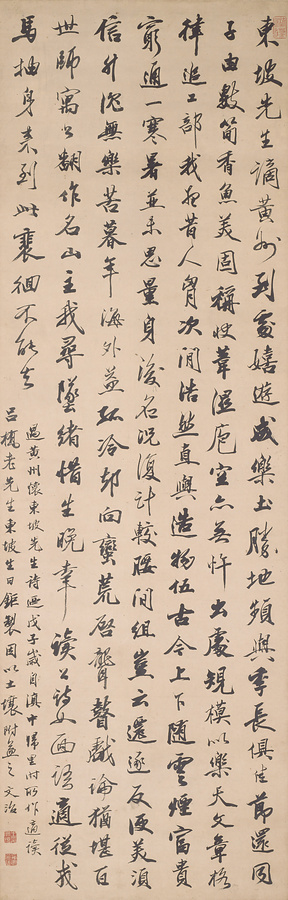 東坡先生謫黃州到處嬉遊成樂土勝地頻與季長俱佳節還同
子由數筍香魚美固稱快葦溼庖空亦無忤出處規模以樂天文章格
律追工部我想昔人胷次間浩然直與造物伍古今上下隨雲煙富貴
窮通一寒暑並未思量身後名況復計較腰間組豈云遷逐反便美須
信升沉無樂苦暮年海外益孤冷却向蠻荒啓聾瞽戲論猶堪百
世師寓公翻作名山主我尋墜緒惜生晚幸讀公詩如面語適從戎
馬抽身來到此裴徊不能去
過黃州懷東坡先生詩廼戊子歲自滇中歸里時所作適讀
呂樵老先生東坡生日鉅製因以土壤附益之 文治